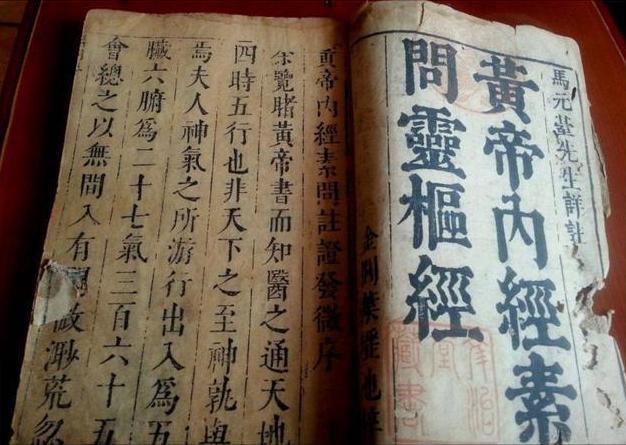 馬元臺先生詳註
黃帝內經素
問靈樞經
黃帝內經素問註證發微序
余覽睹黃帝書而知醫之通天地
四時五行也非天下之至神孰與
焉夫人神氣之所游行出入爲五
臟六腑爲二十七氣三百六十五
會總之以無間入有間故渺荒忽